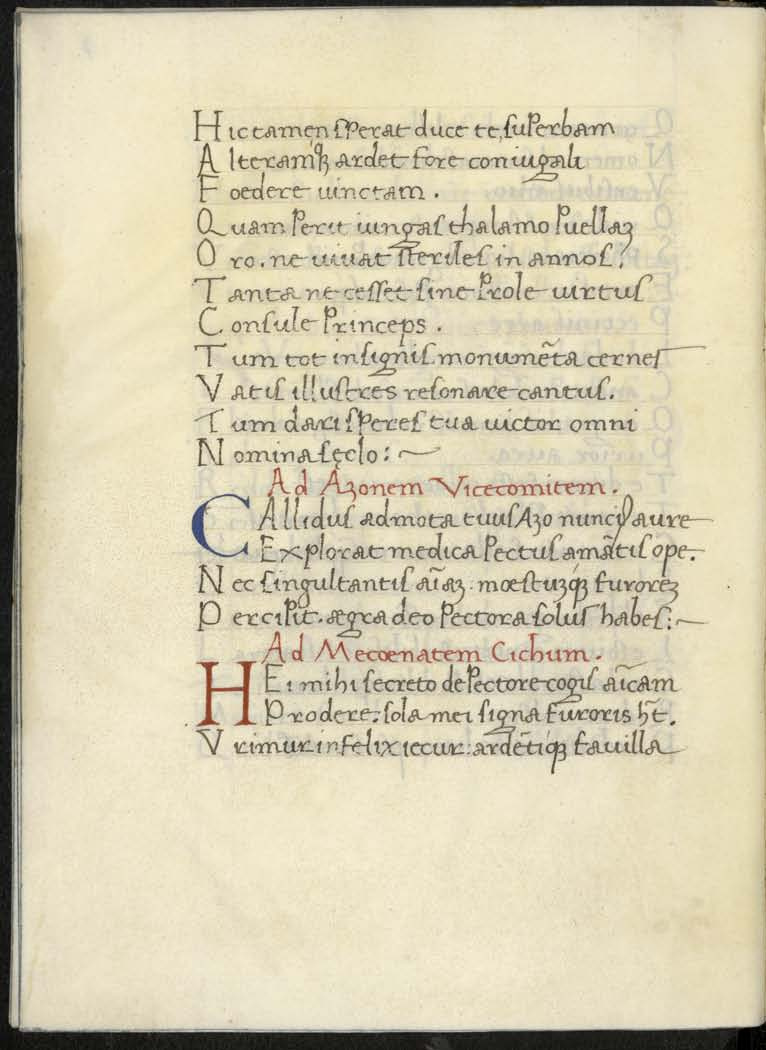 Hic tamen sperat duce te, superbam
Alteramq̃ ardet fore coniugali
Foedere uinctam .
Quam perit iungas thalamo puellaꝫ
Oro . ne uiuat steriles in annos ;
Tanta ne cesset sine prole uirtus
Consule princeps .
Tum tot insignis monumẽta cernes
Vatis illustres resonare cantus .
Tum dari speres tua uictor omni
Nomina sęclo : ~
Ad Azonem Vicecomitem .
CAllidus admota tuus Azo nunc aure
Explorat medica pectus amãtis ope .
Nec singultantis aĩaꝫ . moestuꝫqꝫ furoreꝫ
Percipit . ægra deo pectora solus habes : ~
Ad Mecoenatem Cichum .
HEi mihi secreto de pectore cogis aĩcam
Prodere . sola mei signa furoris hñt .
Vrimur infelix iecur : ardẽtiqꝫ fauilla